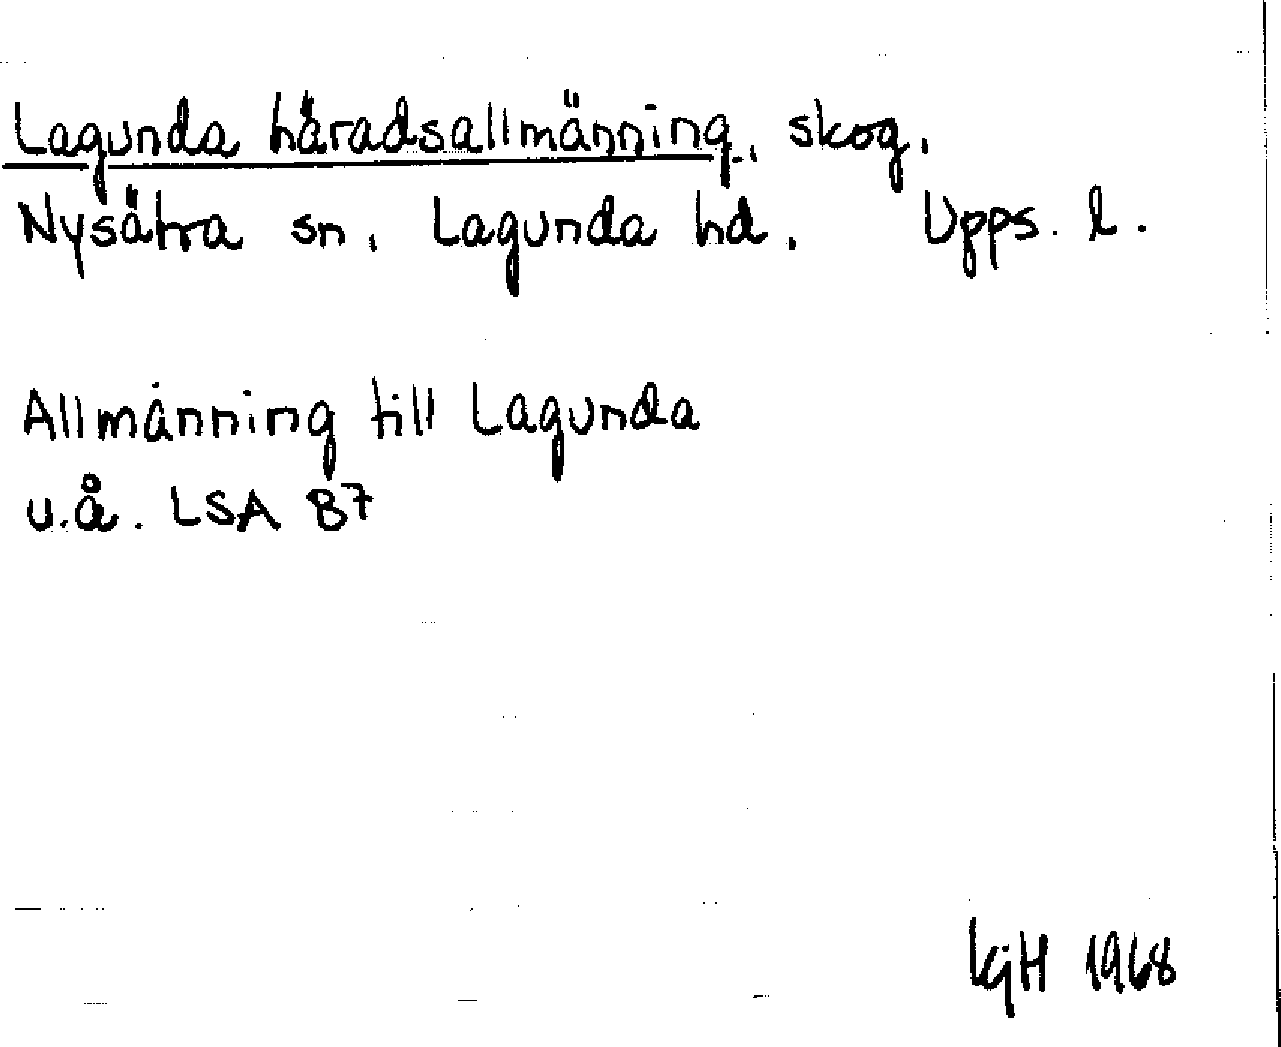 Lagunda häradsallmänning, skog.
Nysätra sn, Lagunda hd, Upps. l.
Allmänning till Lagunda
u.å. LSA B7
KjH 1968